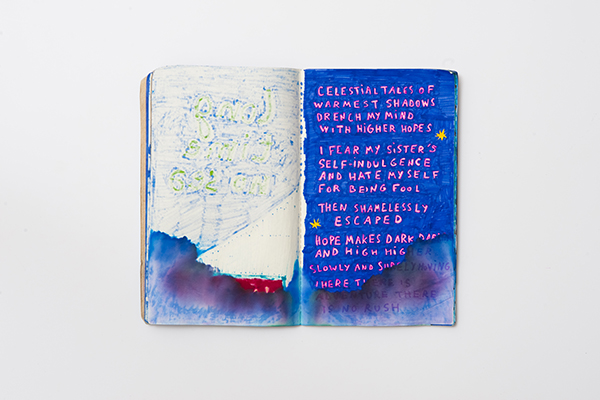 long
time
no see
CELESTIAL TALES OF
WARMEST SHADOWS
DRENCH MY MIND
WITH HIGHER HOPES
I FEAR MY SISTER'S
SELF-INDULGENCE
AND HATE MYSELF
FOR BEING FOOL
THEN SHAMELESSLY
ESCAPED
HOPE MAKES DARK DARK
AND HIGH HIGHER
SLOWLY AND SURELY
WHERE THERE IS
ADVENTURE THERE
IS NO RUSH